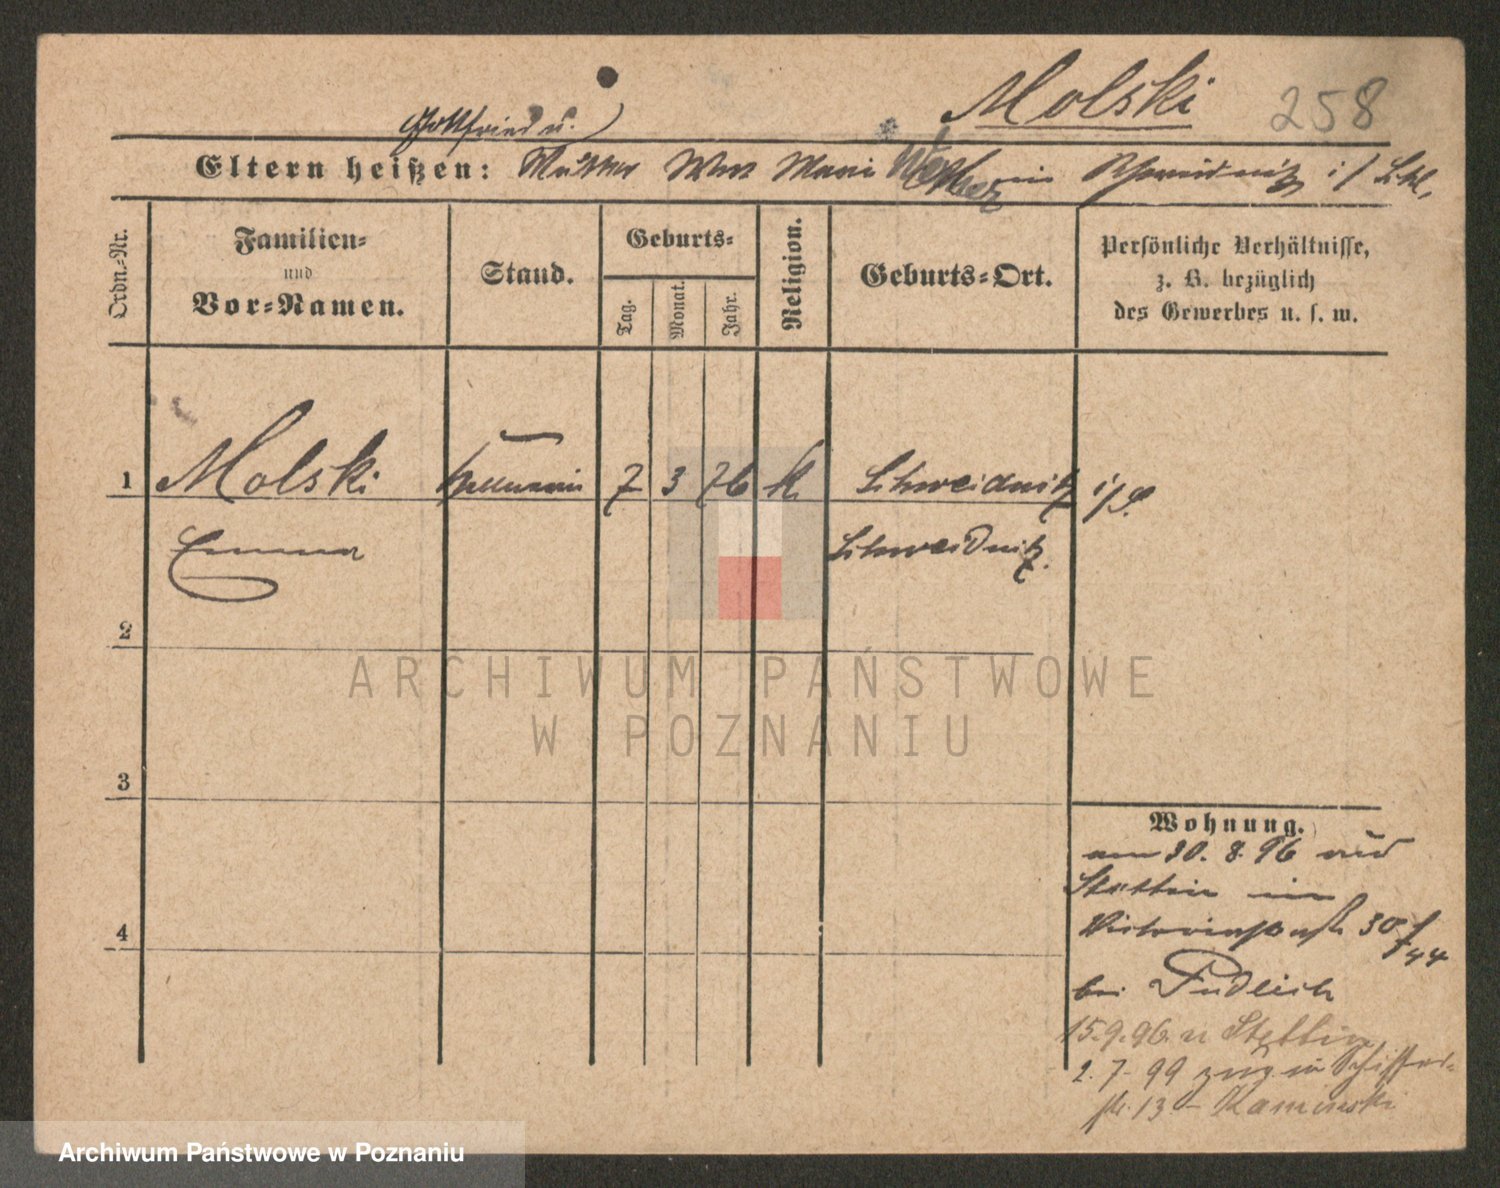 Molski 258
Gottfried u.
Eltern heißen: Mutter Marie in Schweidnitz i/Schl.
Ordn.-Nr.
Familien-
und
Vor-Namen.
Stand.
Geburts-
Tag.
Monat.
Jahr.
Religion.
Geburts-Ort.
Persönliche Verhältnisse,
z. B. bezüglich
des Gewerbes u. s. w.
1 Molski Kellnerin 7 3 76 k Schweidnitz i/S.
Emma Schweidnitz.
2
3
4
Wohnung.
am 30. 8. 96 aus
Stettin in
Victoriastraße 30
bei Pudleich
15.9.96. n Stettin
2. 7. 99 zug. in Schiffer-
str. 13 - Kaminski
ARCHIWUM PAŃSTWOWE
W POZNANIU
Archiwum Państwowe w Poznaniu